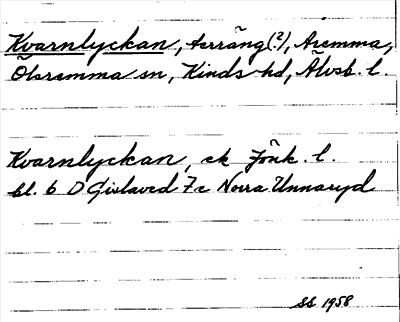 Kvarnlyckan, terräng(?), Åremma,
Ölsremma sn, Kinds hd, Älvsb. l.
Kvarnlyckan, ek Jönk. l.
bl. 6 D Gislaved 7c Norra Unnaryd
SS 1958